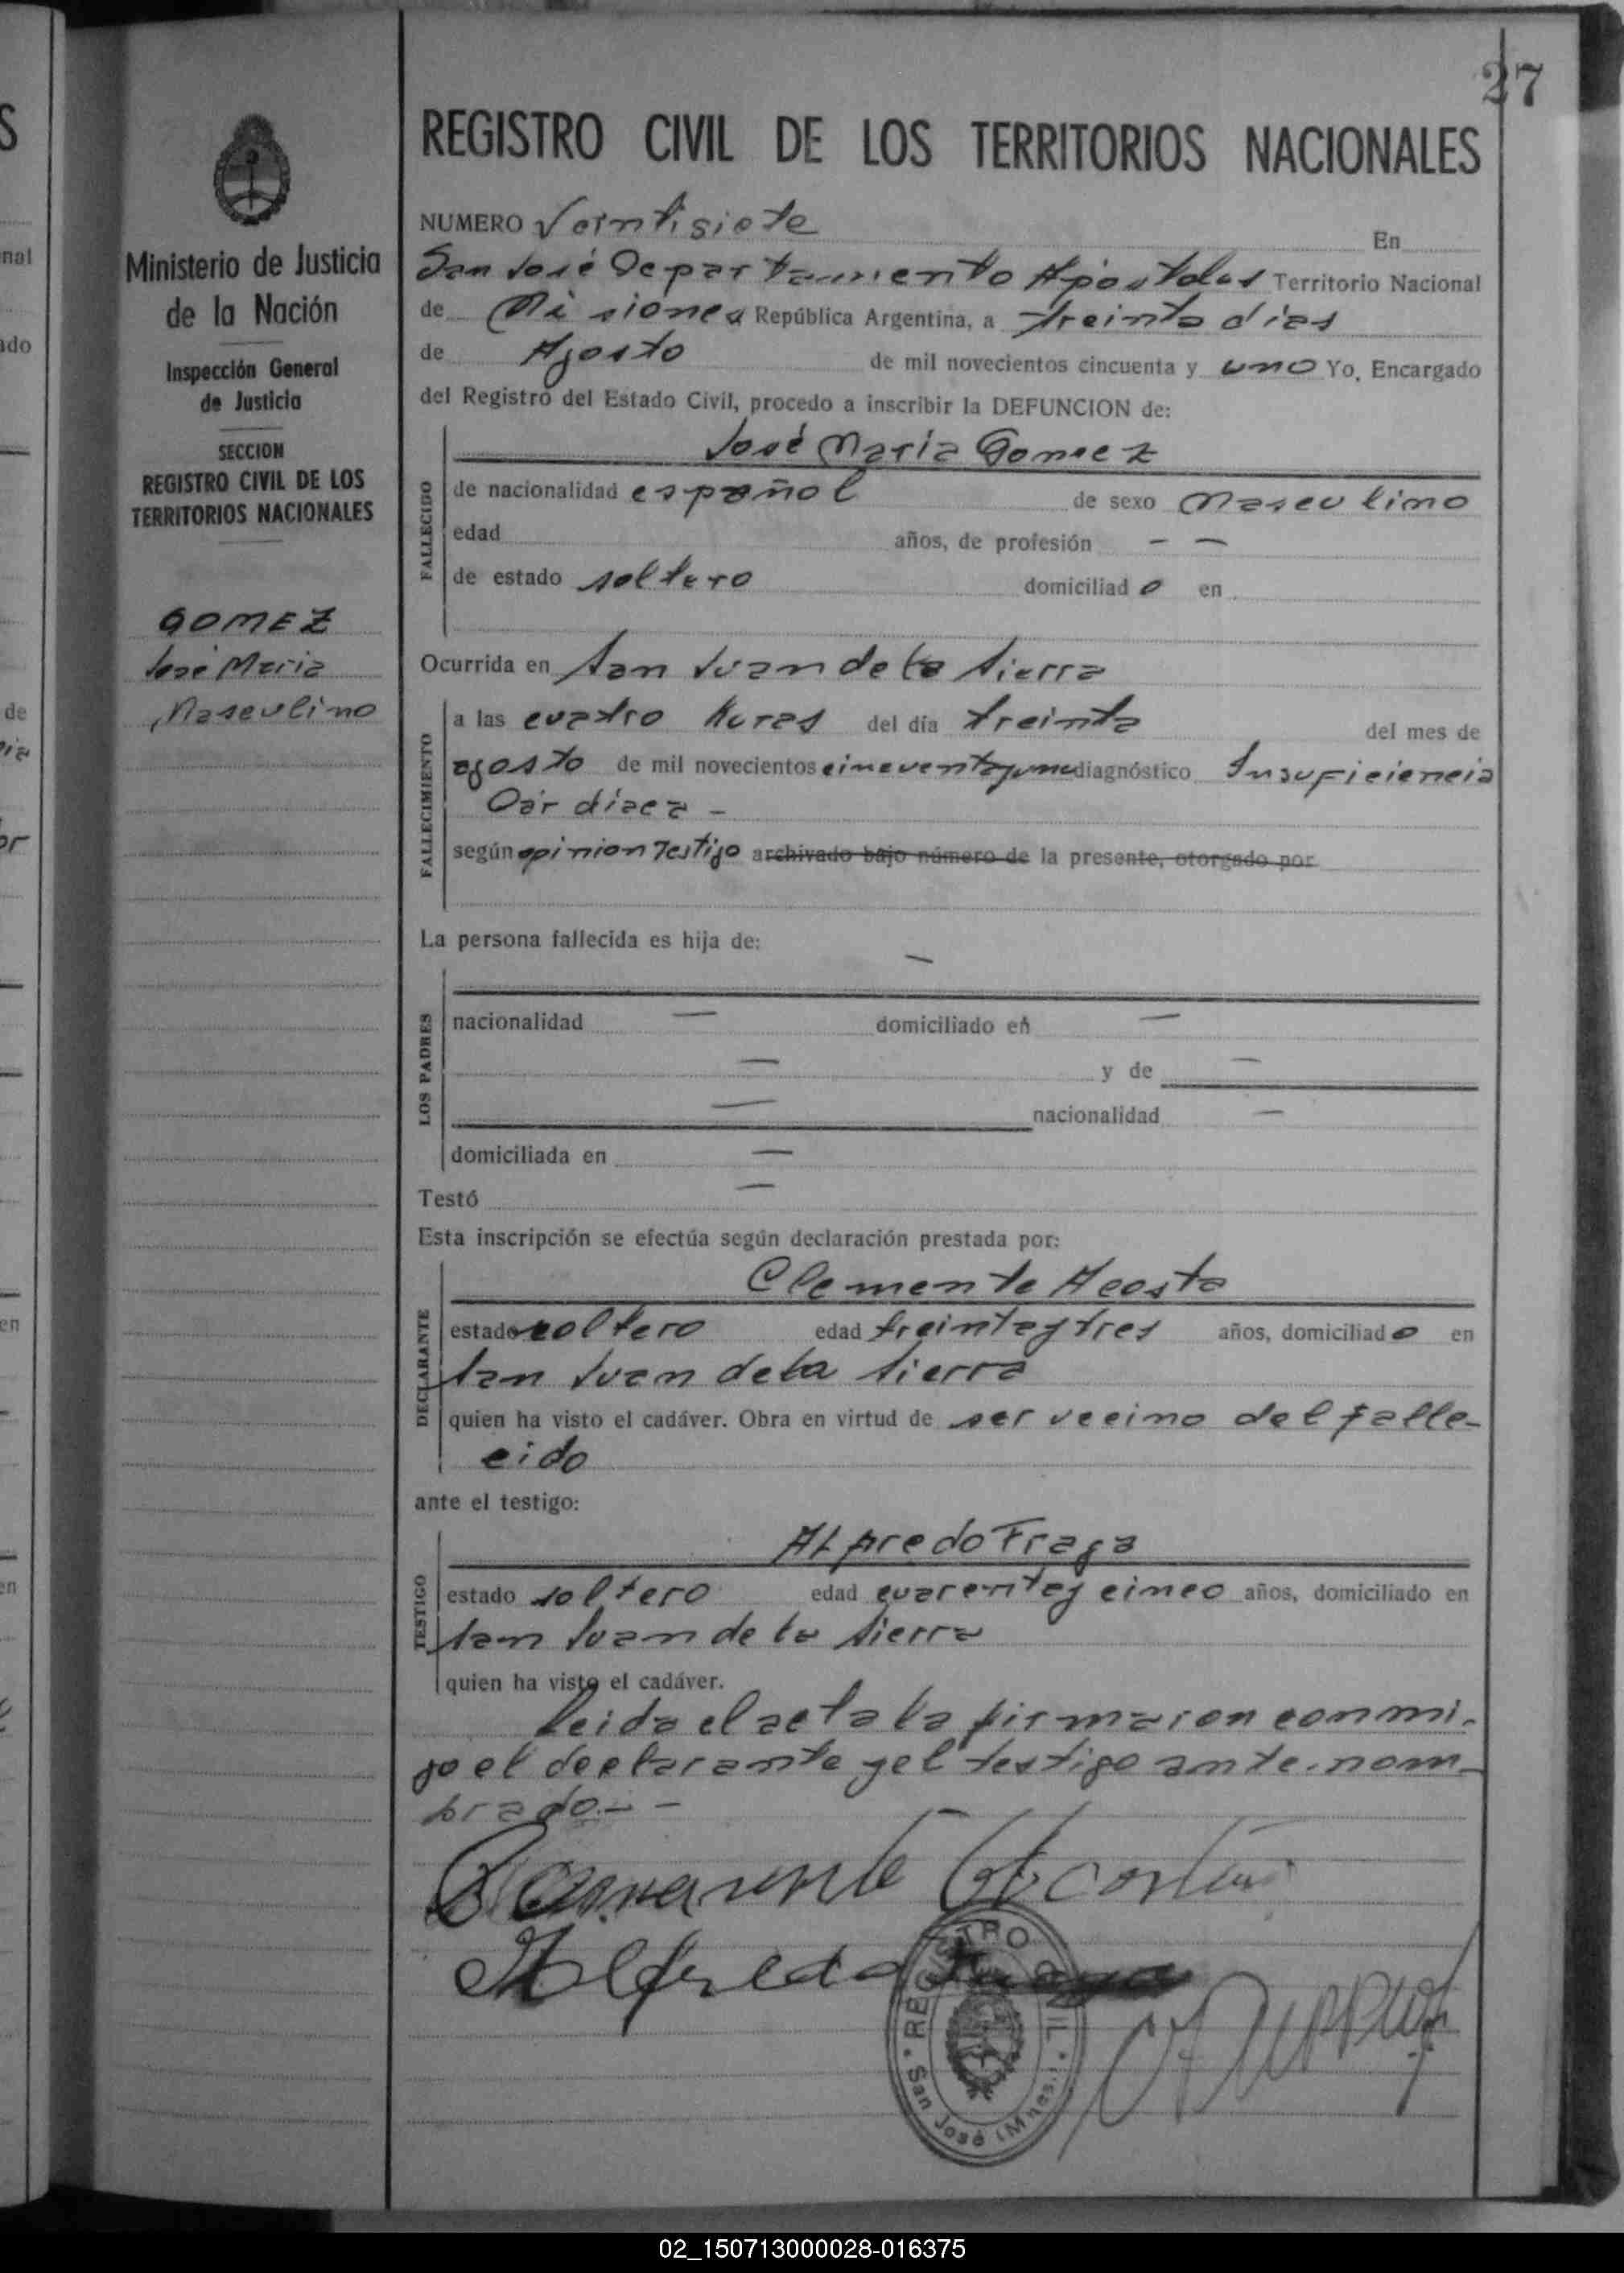 27
REGISTRO CIVIL DE LOS TERRITORIOS NACIONALES
Ministerio de Justicia
de la Nación
Inspección General
de Justicia
SECCION
REGISTRO CIVIL DE LOS
TERRITORIOS NACIONALES
GOMEZ
José Maria
Masculino
NUMERO Veintisiete En
San José Departamento Apóstoles Territorio Nacional
de Misiones República Argentina, a treinta dias
de Agosto de mil novecientos cincuenta y uno Yo, Encargado
del Registro del Estado Civil, procedo a inscribir la DEFUNCION de:
José Maria Gomez
FALLECIDO
de nacionalidad español de sexo Masculino
edad años, de profesión - -
de estado soltero domiciliad o en
Ocurrida en San Juan de la Sierra
FALLECIMIENTO
a las cuatro horas del día treinta del mes de
agosto de mil novecientos cincuentayuno diagnóstico Insuficiencia
Cardíaca -
según opinion Testigo archivado bajo número de la presente, otorgado por
La persona fallecida es hija de:
LOS PADRES
nacionalidad — domiciliado en —
— y de —
— nacionalidad —
domiciliada en —
Testó —
Esta inscripción se efectúa según declaración prestada por:
Clemente Acosta
DECLARANTE
estado soltero edad treintaytres años, domiciliado en
San Juan de la Sierra
quien ha visto el cadáver. Obra en virtud de ser vecino del falle-
cido
ante el testigo:
Alfredo Fraga
TESTIGO
estado soltero edad cuarentay cinco años, domiciliado en
San Juan de la Sierra
quien ha visto el cadáver.
Leida el acta la firmaron conmi-
go el declarante y el testigo ante-nom-
brado.- -
Alfredo Fraga
REGISTRO CIVIL
San José (Mnes.)
02_150713000028-016375